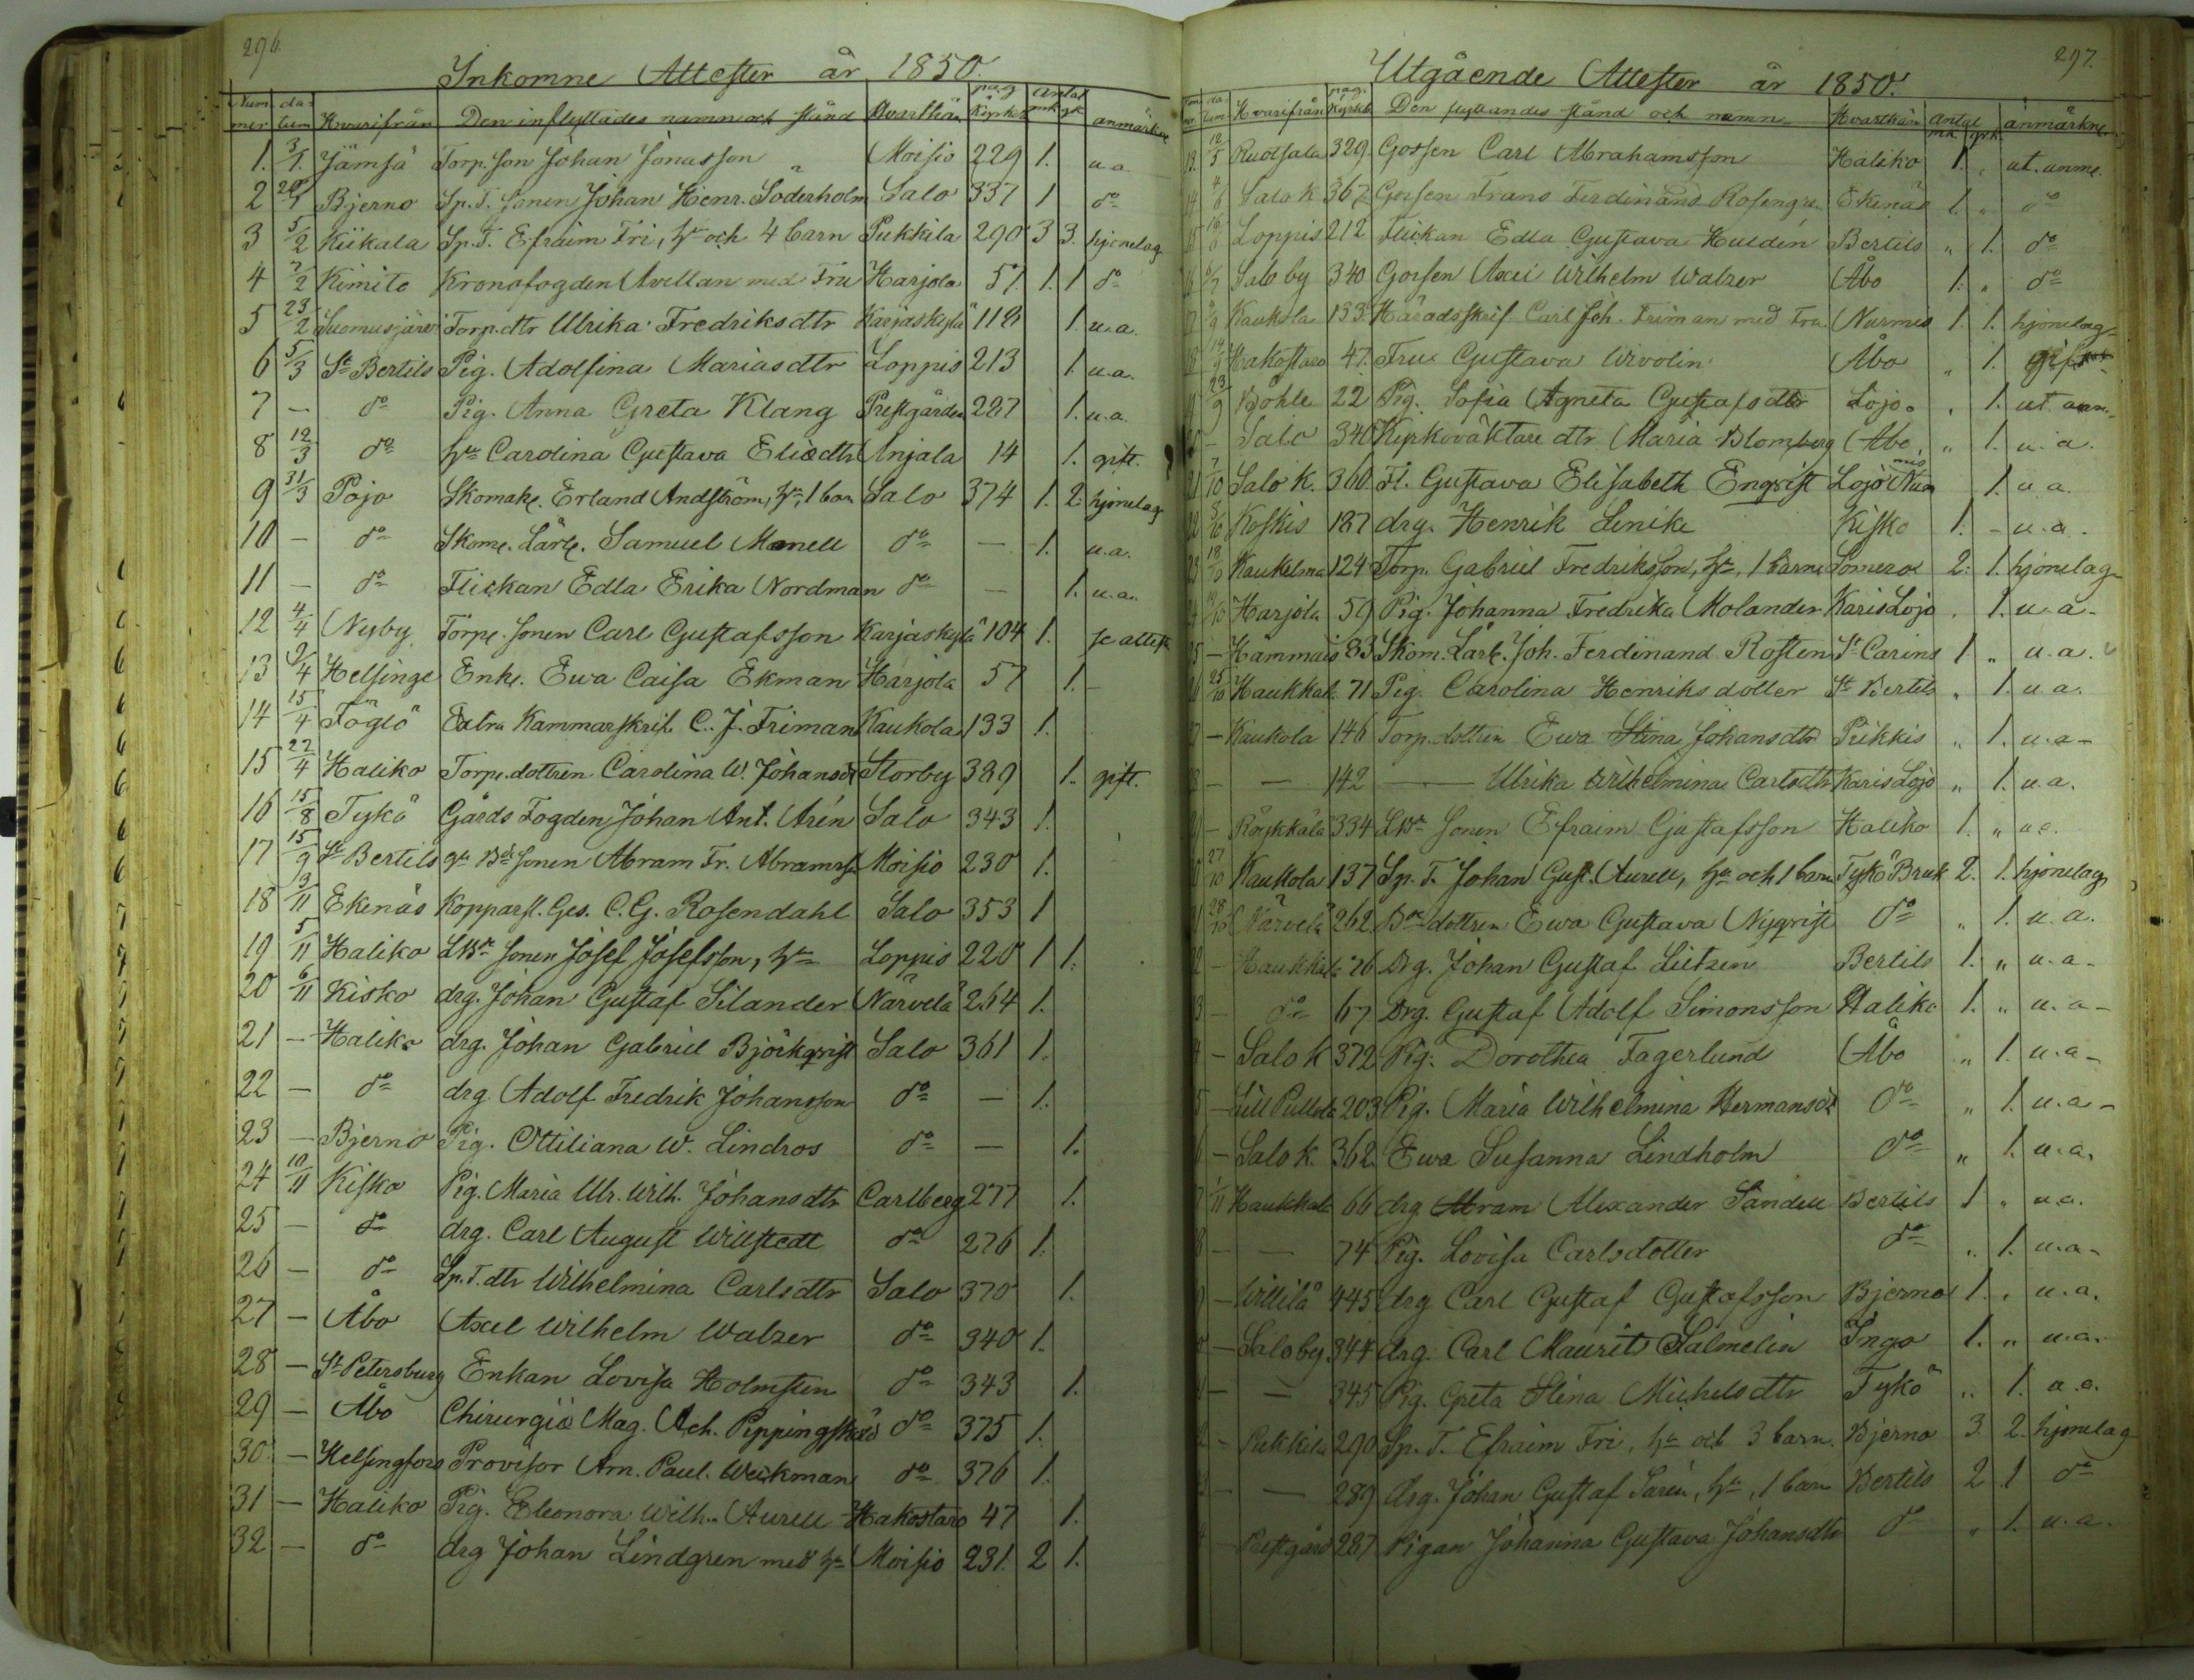 296.
Inkomne Attester år 1850.
Nummer datum Hvarifrån Den inflyttades namn och stånd Hvarthän pag. Kyrkb. Antal mk. qk. anmärkn.
1. 3/1. Jämsä Torp. son Johan Jonasson Moisio 229 1. u.a.
2 20/1 Bjerno Sp. T. sonen Johan Henr. Söderholm Salo 337 1 do
3 5/2 Kiikala Sp. T. Efraim Fri, hu och 4 barn Pukkila 290 3 3. hjonelag
4 7/2 Kimito Kronofogden Avellan med Fru Harjola 57 1. 1 do
5 23/2 Suomusjärvi Torp. dtr Ulrika Fredriksdtr Karjaskylä 118 1. u.a.
6 5/3 St Bertils Pig. Adolfina Mariasdtr Loppis 213 1. u.a.
7 – do Pig. Anna Greta Klang Prestgården 227 1. u.a.
8 12/3 do hu Carolina Gustava Eliædtr Anjala 14 1. gift.
9 31/3 Pojo Skomak. Erland Andström, hu, 1 barn Salo 374 1. 2. hjonelag
10 – do Skom. Lärl. Samuel Manell do – 1. u.a.
11 – do Flickan Edla Erika Nordman do – 1. u.a.
12 4/4 Nyby Torp. sonen Carl Gustafsson Karjaskylä 104 1. se attest
13 9/4 Helsinge Enk. Ewa Caisa Ekman Harjola 57 1. –
14 15/4 Föglö Extra Kammarskrif. C. J. Friman Kaukola 133 1.
15 22/4 Haliko Torp. dottren Carolina W. Johansdr Storby 389 1. gift.
16 15/8 Tykö Gårds Fogden Johan Ant. Arén Salo 343 1.
17 15/9 St Bertils sonen Abram Fr. Abramss. Moisio 230 1.
18 3/11 Ekenäs Kopparsl. Ges. C. G. Rosendahl Salo 353 1
19 5/11 Haliko LBde sonen Josef Josefsson, hu Loppis 220 1 1.
20 6/11 Kisko drg. Johan Gustaf Silander Närvelä 264 1.
21 – Haliko drg. Johan Gabriel Björkqvist Salo 361 1.
22 – do drg Adolf Fredrik Johansson do – 1.
23 – Bjerno Pig. Ottiliana W. Lindros do – 1.
24 10/11 Kisko Pig. Maria Ulr. Wilh. Johansdtr Carlberg 277 1.
25 – do drg. Carl August Willstedt do 276 1.
26 – do Sp. T. dtr Wilhelmina Carlsdtr Salo 370 1.
27 – Åbo Axel Wilhelm Walzer do 340 1.
28 – St Petersburg Enkan Lovisa Holmsten do 343 1.
29 – Åbo Chirurgiæ Mag. Ach. Pippingsköld do 375 1.
30. – Helsingfors Provisor Arn. Paul. Weckman do 376 1.
31 – Haliko Pig. Eleonora Wilh. Aurell Hakostaro 47 1.
32 – do drg Johan Lindgren med hu Moisio 231. 2 1.
297.
Utgående Attester år 1850.
datum Hvarifrån pag. Kyrkb. Den flyttandes stånd och namn Hvarthän Antal mk. qk. anmärkn.
13. 12/5 Ruotsala 329. Gossen Carl Abrahamsson Haliko 1. „ ut. anm.
14 4/6 Salo K. 367. Gossen Frans Ferdinand Rosengre. Ekenäs 1. „ do
15 16/6 Loppis 212 Flickan Edla Gustava Huldin Bertils „ 1. do
16 6/7 Salo by 340 Gossen Axel Wilhelm Walzer Åbo 1. „ do
17 Kaukola 133. Häradsskrif. Carl Joh. Friman med Fru. Nurmis 1. 1. hjonelag
18 14/9 Hakostaro 47. Fru Gustava Wivolin Åbo „ 1. gift
19 23/9 22 Pig. Sofia Agneta Gustafsdtr Lojo. „ 1. ut. anm.
20 – Salo 340 Kyrkoväktare dtr Maria Blomberg Åbo „ 1. u.a.
21 7/10 Salo K. 360 Fl. Gustava Elisabeth Engvist Lojo Nummis 1. u.a.
22 8/10 Koskis 187 drg. Henrik Lenike Kisko 1. – u.a.
23 18/10 Kaukelma 124 Torp. Gabriel Fredriksson, hu, 1 barn Somero 2. 1. hjonelag
24 19/10 Harjola 59 Pig. Johanna Fredrika Molander Karis Lojo . 1. u.a.
25 – Hammais 83 Skom. Lärl. Joh. Ferdinand Rosten St Carins 1 „ u.a.
26 25/10 Haukkala 71 Pig. Carolina Henriksdotter St Bertils „ 1. u.a.
27 – Kaukola 146 Torp. dottren Ewa Stina Johansdtr Piikkis „ 1. u.a.
28 – – 142 – Ulrika Wilhelmina Carlsdtr Karis Lojo „ 1. u.a.
29 – 334 LBde sonen Efraim Gustafsson Haliko 1. „ u.a.
30 27/10 Kaukola 137 Sp. T. Johan Gust. Aurell, hu och 1 barn Tykö Bruk 2. 1. hjonelag
31 28/10 Närvelä 262. Bde dottren Ewa Gustava Nyqvist do „ 1. u.a.
32 – Haukkala 76 Drg. Johan Gustaf Lietzen Bertils 1. „ u.a.
33 – do 67 Drg. Gustaf Adolf Simonsson Haliko 1. „ u.a.
34 – Salo K 372 Pig. Dorothea Fagerlund Åbo „ 1. u.a.
35 – Lill Pullola 203 Pig. Maria Wilhelmina Hermansdr do „ 1. u.a.
36 – Salo K. 362. Ewa Susanna Lindholm do „ 1. u.a.
37 1/11 Haukkala 66 drg Abram Alexander Sandell Bertils 1 „ u.a.
38 – – 74 Pig. Lovisa Carlsdotter do „ 1. u.a.
39 – Willilä 445 drg Carl Gustaf Gustafsson Bjerno 1. „ u.a.
40 – Salo by 344 drg. Carl Maurits Salmelin Ingo 1. „ u.a.
41 – – 345 Pig. Greta Stina Michelsdtr Tykö „ 1. u.a.
42 – Pukkila 290 Sp. T. Efraim Fri, hu och 3 barn. Bjerno 3. 2. hjonelag
43 – – 289 drg. Johan Gustaf Sarén, hu, 1 barn Bertils 2 1 do
44 Prestgård 287 Pigan Johanna Gustava Johansdtr do „ 1. u.a.